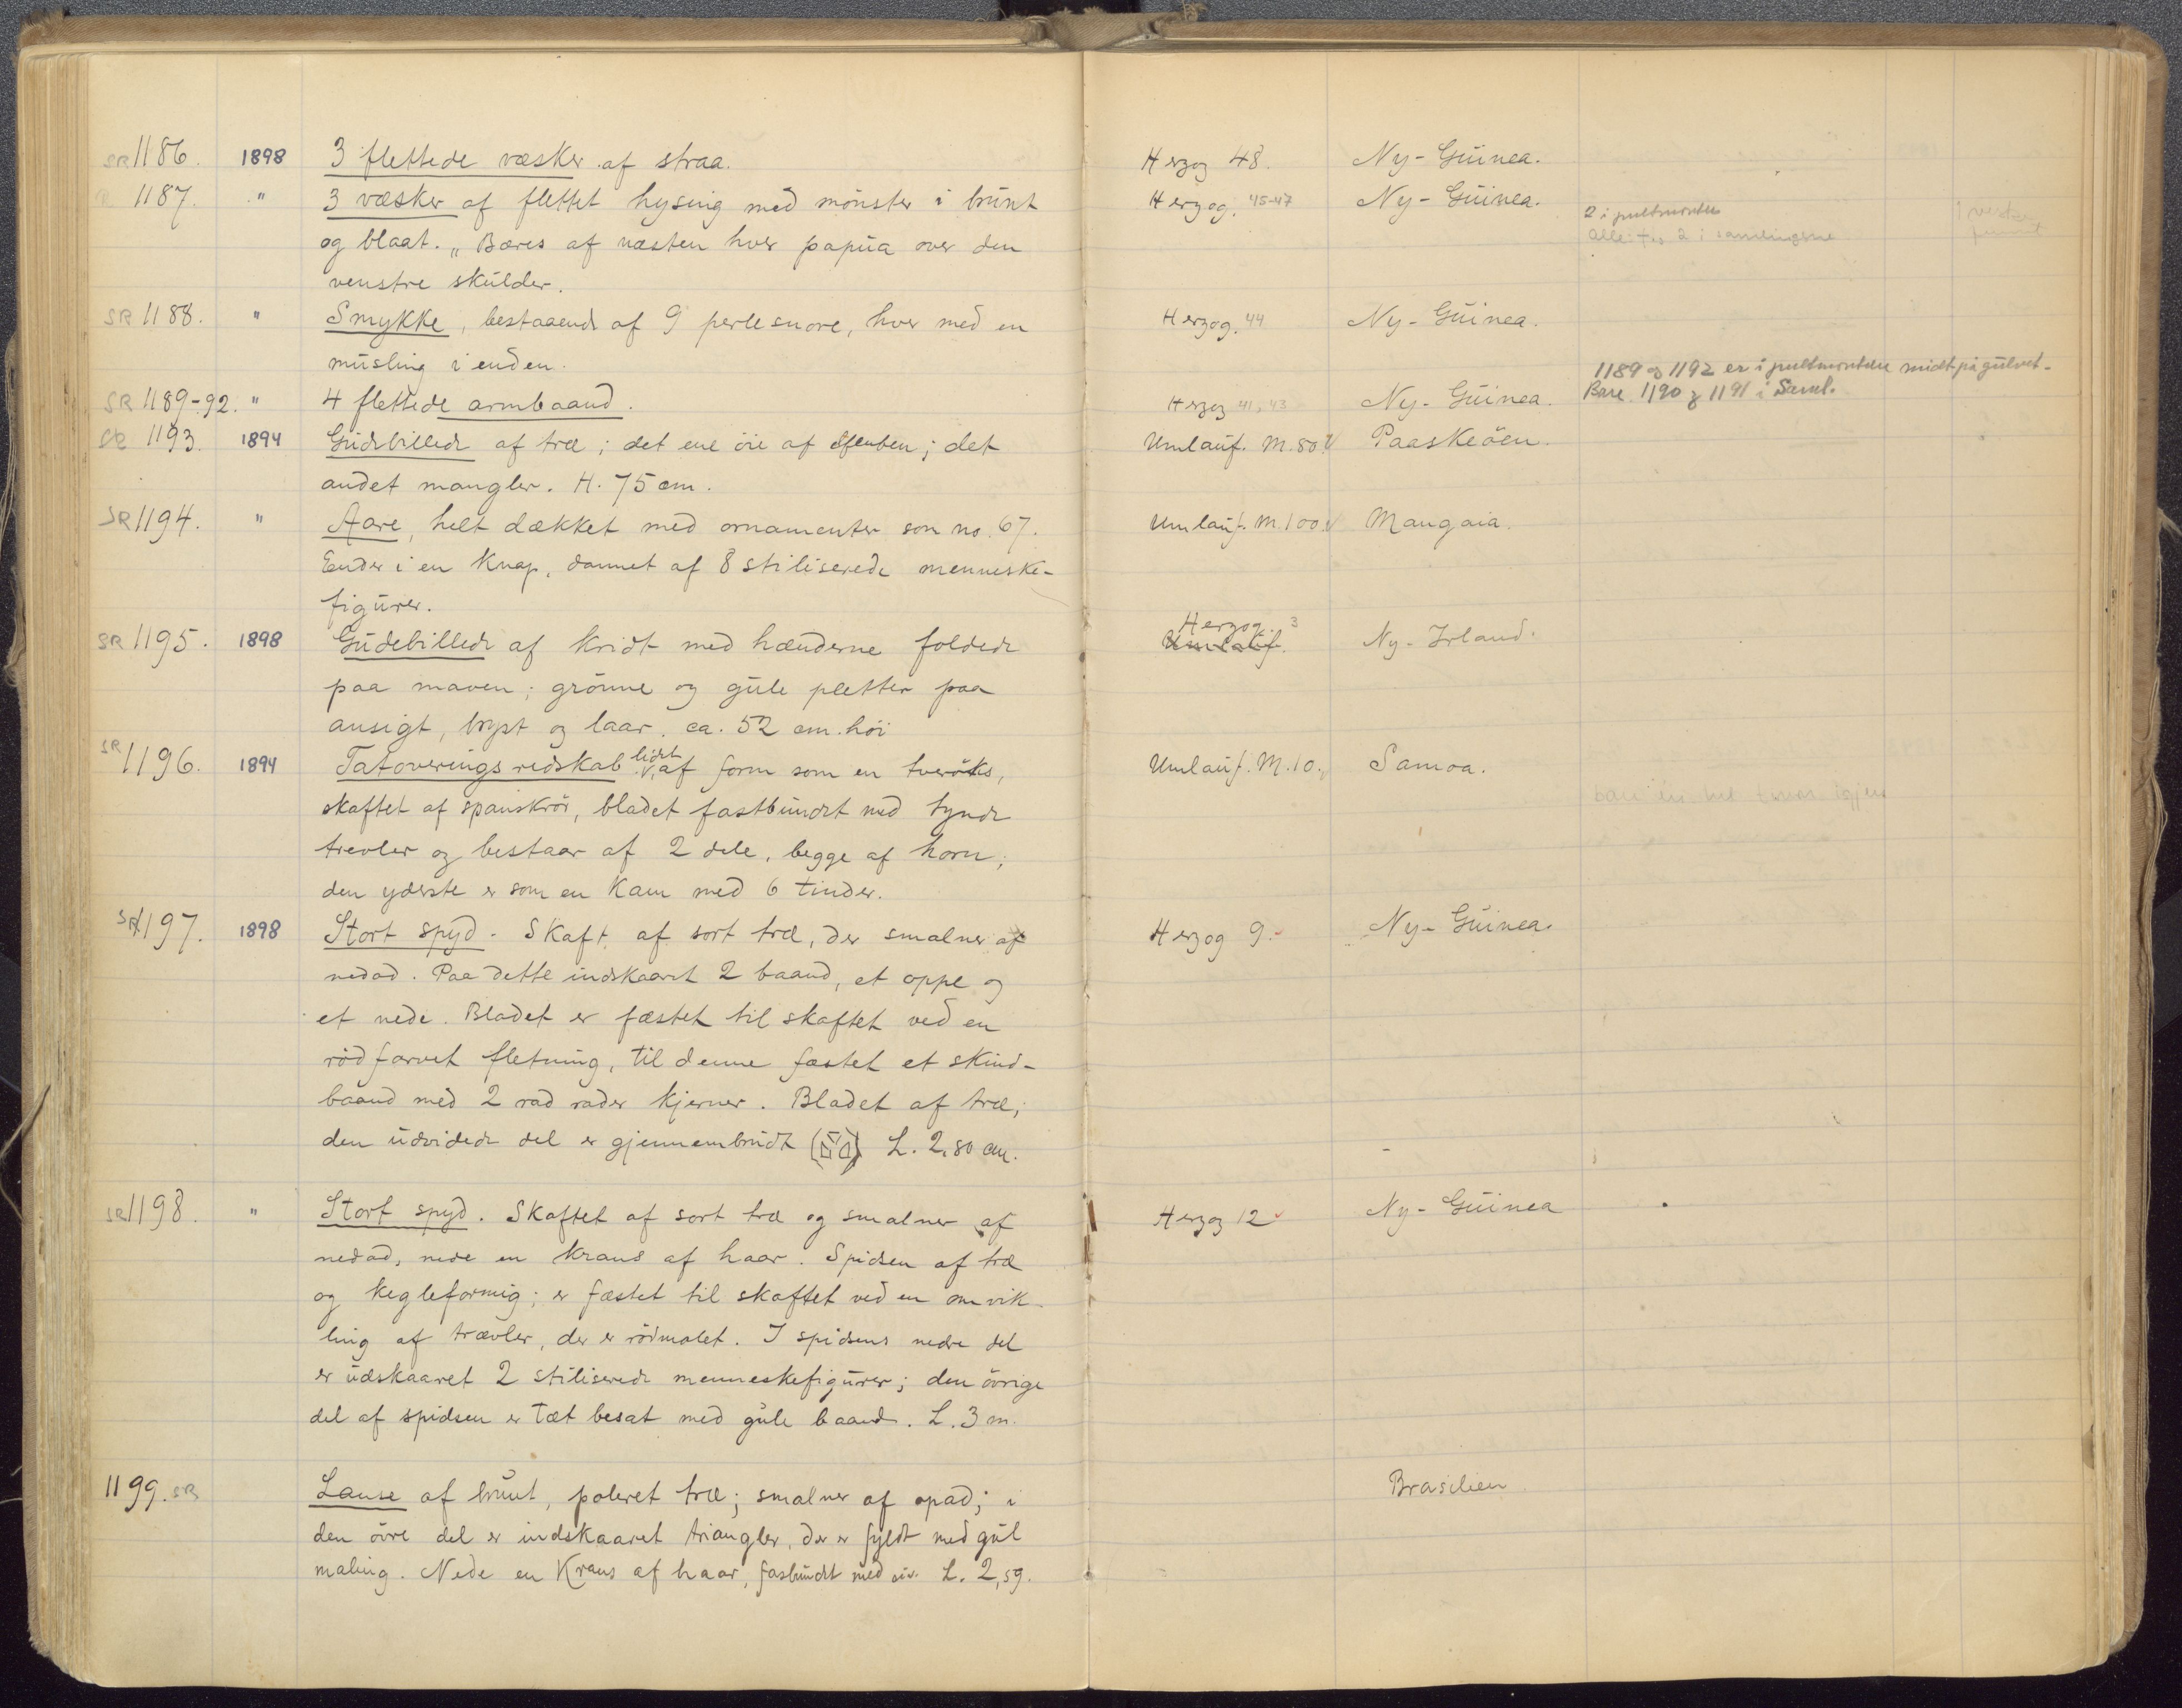 SR 1186. 1898 3 flettede væsker af straa. Herzog 48. Ny-Guinea.
1187. " 3 væsker af flettet hysing med mönster i brunt Herzog. 45-47 Ny-Guinea.
2 i pultmontre
og blaat. „Bæres af næsten hver papua over den
2 i samlingerne
venstre skulder.
SR 1188. " Smykke, bestaaende af 9 perlesnore, hver med en Herzog. 44 Ny-Guinea.
musling i enden.
1189 og 1192 er i pultmontre midt på gulvet.
SR 1189-92. " 4 flettede armbaand. Herzog 41, 43 Ny-Guinea. Bare 1190 og 1191 i Saml.
SR 1193. 1894 Gudsbillede af træ; det ene öie af elfenben; det Umlauf. M. 80. Paaskeöen.
andet mangler. H. 75 cm.
SR 1194. " Aare, helt dækket med ornamenter som no. 67. Umlauf. M. 100. Mangaia.
Ender i en knap, dannet af 8 stiliserede menneske-
figurer.
Herzog. 3
SR 1195. 1898 Gudebillede af kridt med hænderne foldede Umlauf. Ny-Irland.
paa maven; grönne og gule pletter paa
ansigt, bryst og laar. ca. 52 cm. höi
SR 1196. 1894 Tatoveringsredskab, lidet af form som en tveröks, Umlauf. M. 10. Samoa.
skaftet af spanskrör, bladet fastbundet med tynde
trevler og bestaar af 2 dele, begge af horn;
den yderste er som en kam med 6 tinder.
SR 1197. 1898 Stort spyd. Skaft af sort træ, der smalner af Herzog 9. Ny-Guinea.
nedad. Paa dette indskaaret 2 baand, et oppe og
et nede. Bladet er fæstet til skaftet ved en
rödfarvet fletning, til denne fæstet et skind-
baand med 2 rad rader kjerner. Bladet af træ;
den udvidede del er gjennembrudt L. 2,80 cm.
SR 1198. " Stort spyd. Skaftet af sort træ og smalner af Herzog 12 Ny-Guinea
nedad, nede en krans af haar. Spidsen af træ
og kegleformig; er fæstet til skaftet ved en omvik-
ling af trævler, der er rödmalet. I spidsens nedre del
er udskaaret 2 stiliserede menneskefigurer; den övrige
del af spidsen er tæt besat med gule baand. L. 3 m.
1199. SR Lanse af brunt, poleret træ; smalner af opad; i Brasilien
den övre del er indskaaret triangler, der er fyldt med gul
maling. Nede en Krans af haar, fasbundet med siv. L. 2,59.